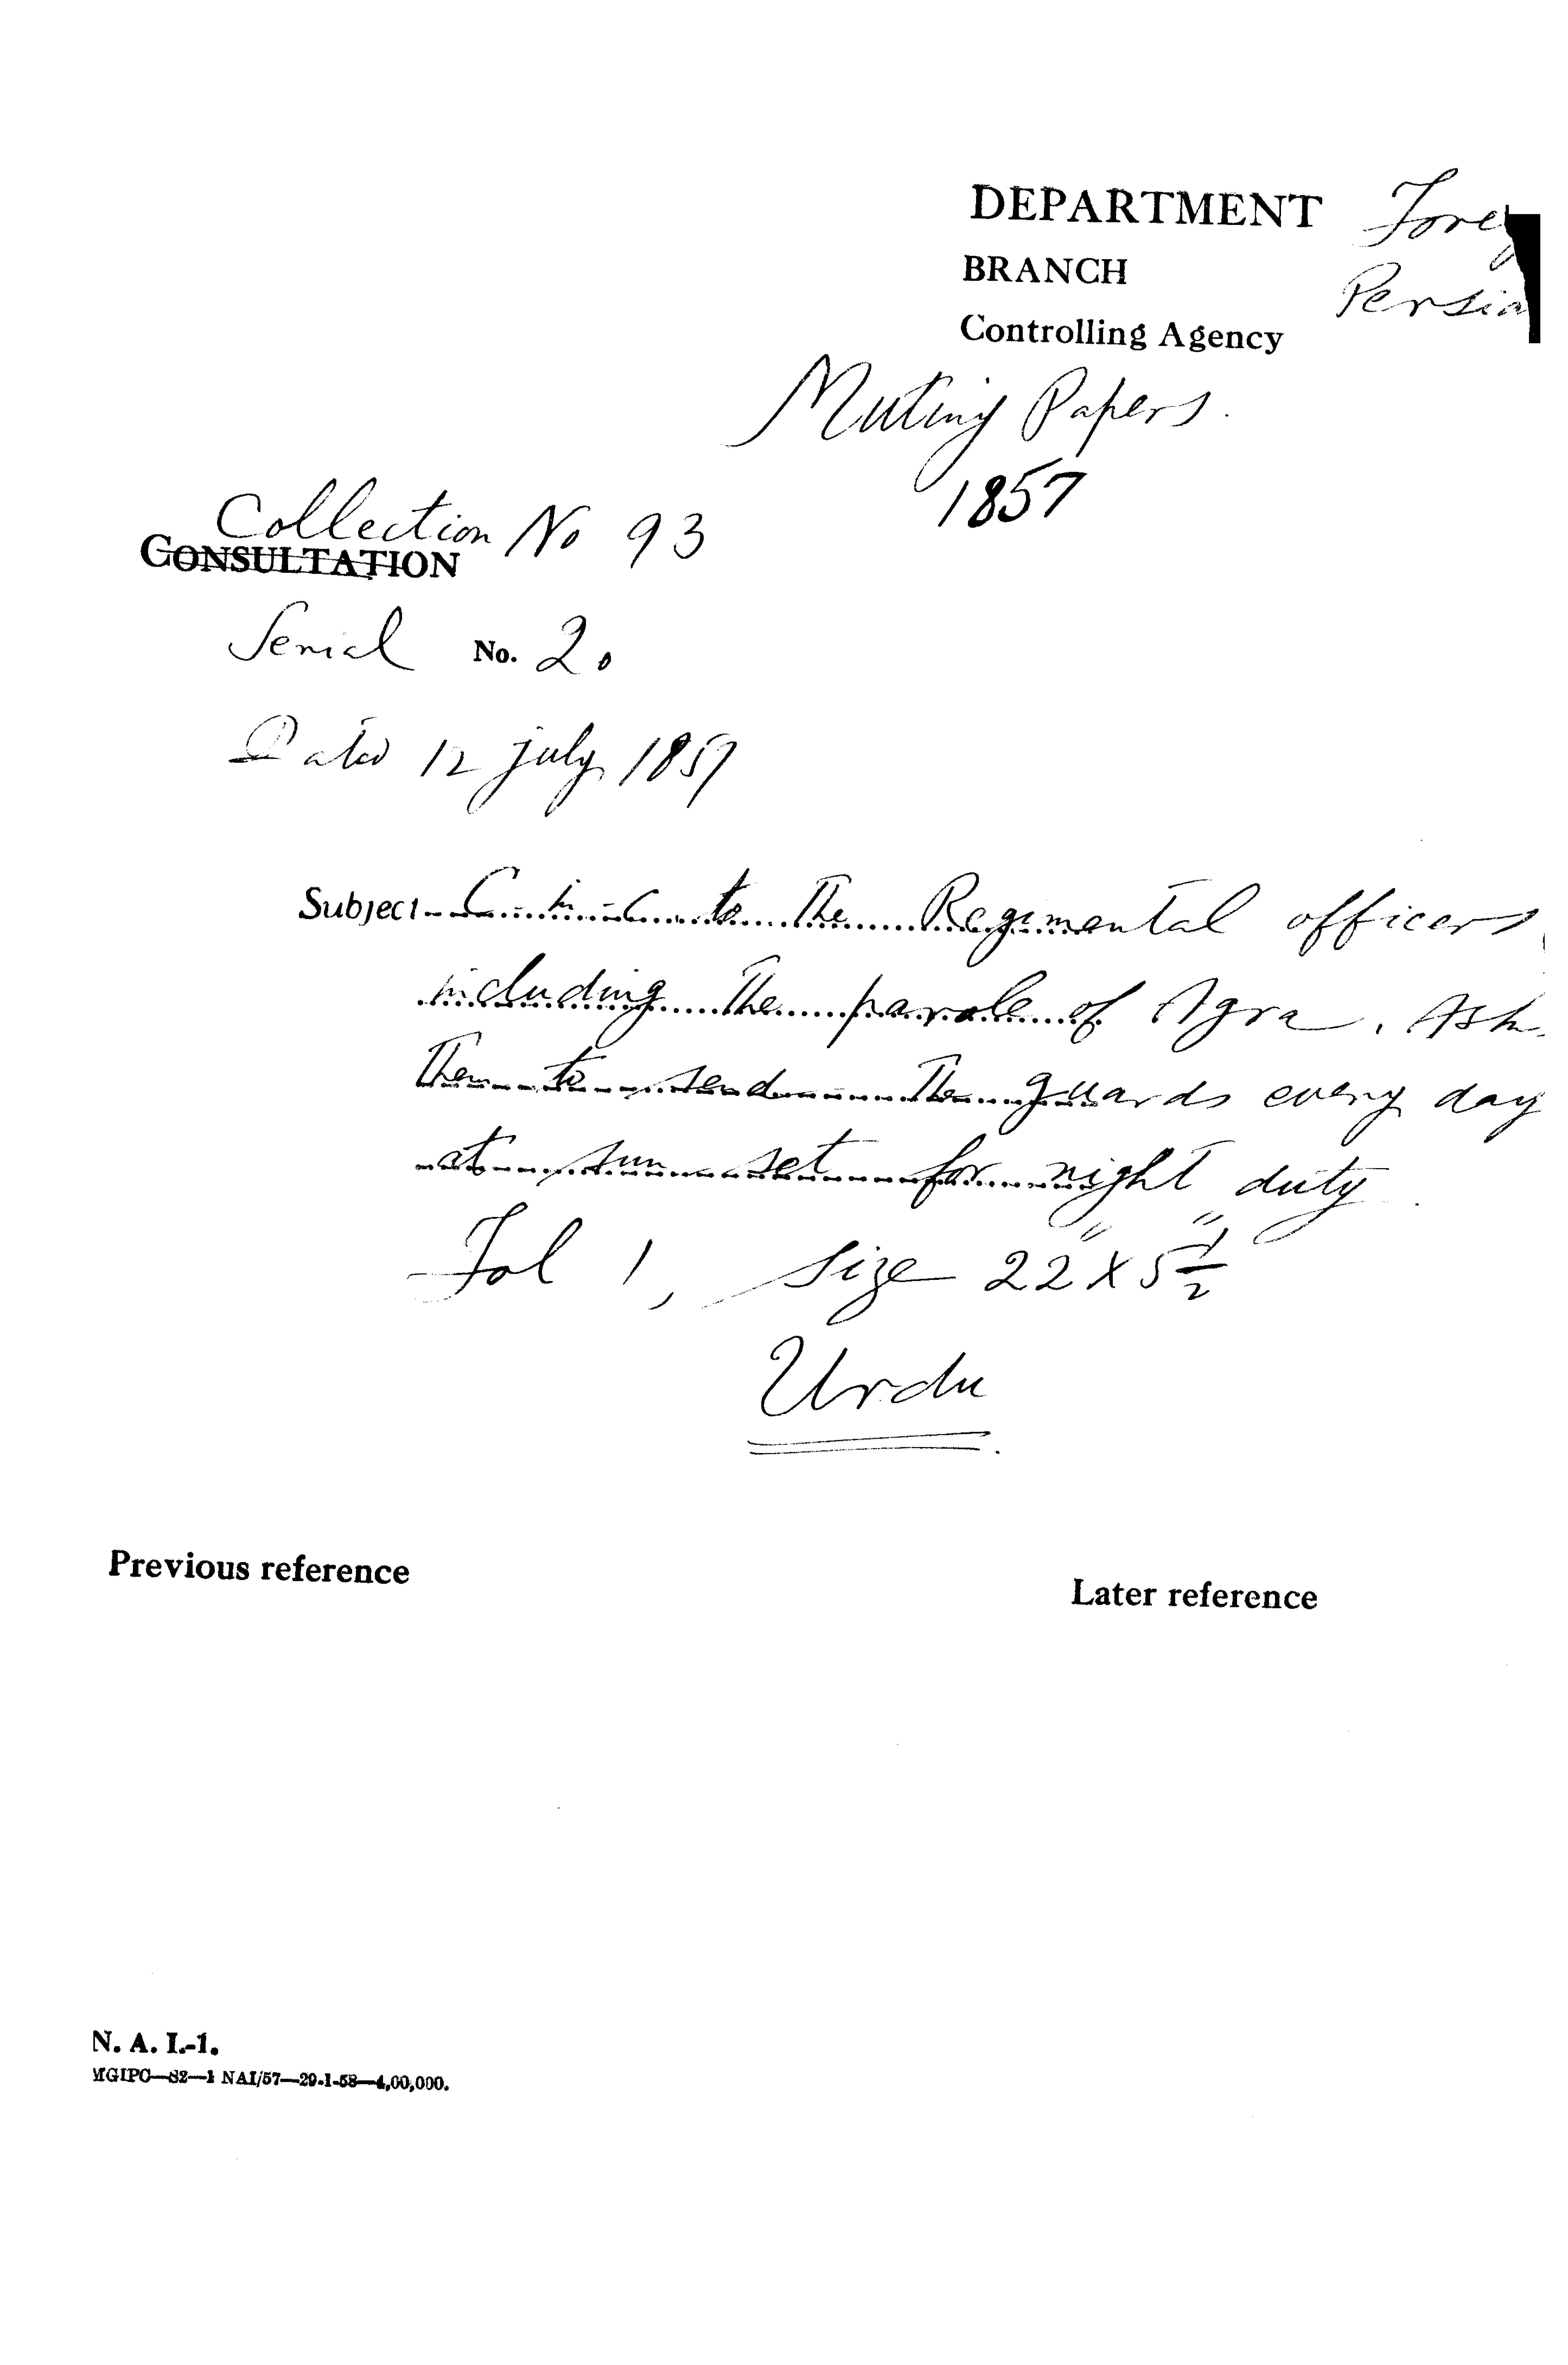 DEPARTMENT
BRANCH
Controlling Agency
Mutiny Papers.
1857
Collection No 93
CONSULTATION
Serial No. 20
Dated 12 July 1857
Subject C. in C. to the Regimental officers
including the parole of Agra. Ask
them to send the guards every day
at sun set for night duty.
Fol 1, Size 22" X 5 1/2"
Urdu
Previous reference
Later reference
N. A. I.-1.
MGIPC—S2—1 NAI/57—29-1-58—4,00,000.